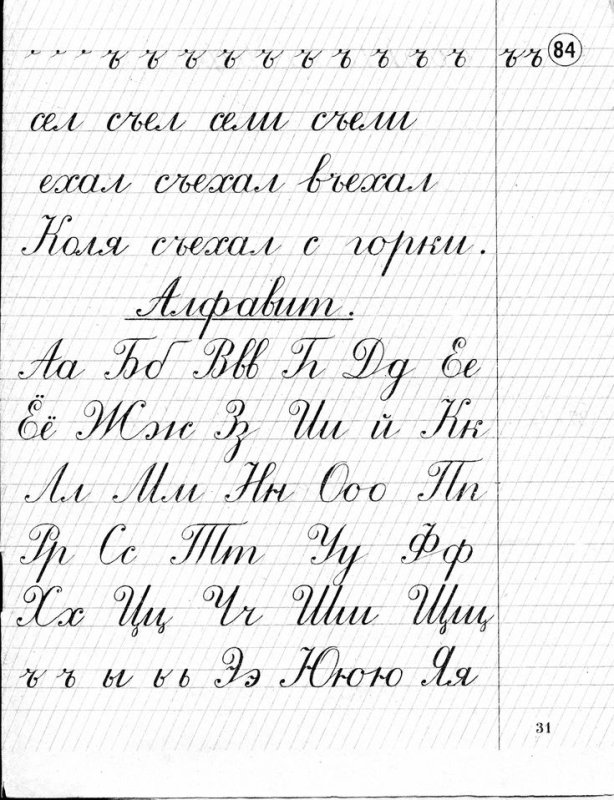 ъ ъ ъ ъ ъ ъ ъ ъ ъ ъ ъъ 84
сел съел сели съели
ехал съехал въехал
Коля съехал с горки.
Алфавит.
Аа Бб Ввв Гг Дд Ее
Ёё Жж Зз Ии й Кк
Лл Мм Нн Ооо Пп
Рр Сс Тт Уу Фф
Хх Цц Чч Шш Щщ
ъ ъ ы ь ь Ээ Ююю Яя
31